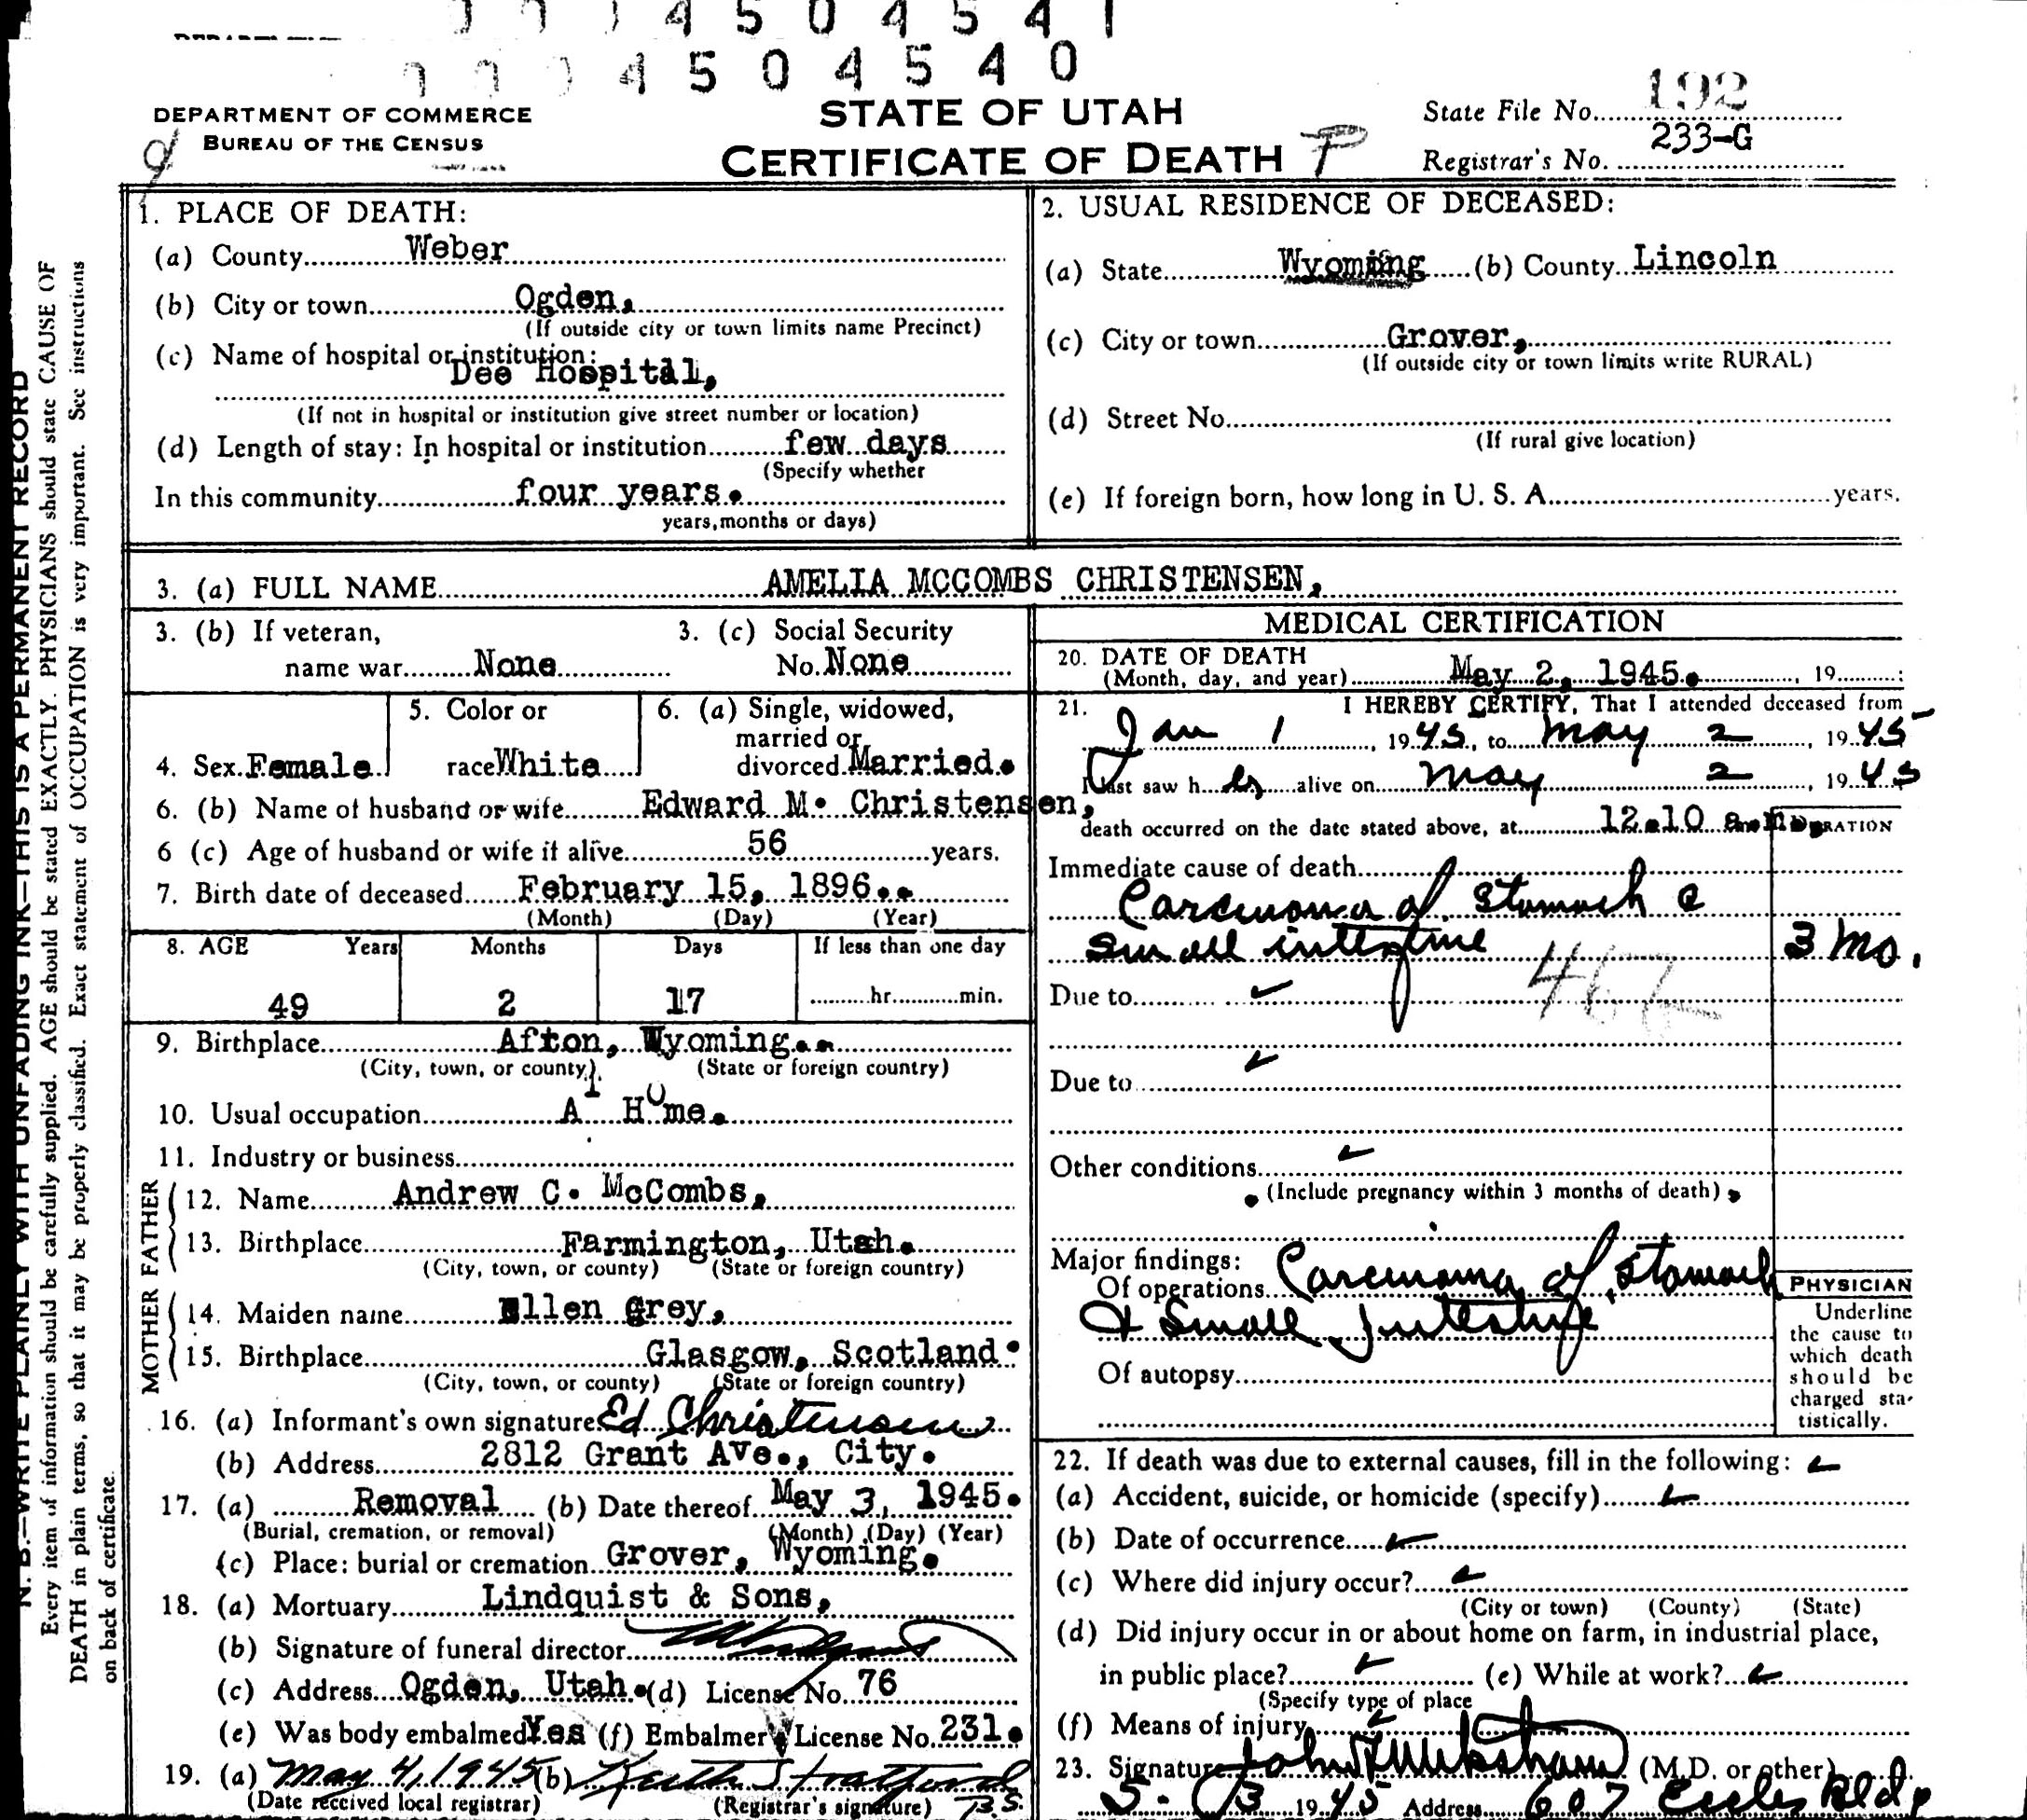 4 5 0 4 5 4 1
4 5 0 4 5 4 0
DEPARTMENT OF COMMERCE
BUREAU OF THE CENSUS
STATE OF UTAH
CERTIFICATE OF DEATH P
State File No. 192
Registrar's No. 233-G
N. B.—WRITE PLAINLY WITH UNFADING INK—THIS IS A PERMANENT RECORD
Every item of information should be carefully supplied. AGE should be stated EXACTLY. PHYSICIANS should state CAUSE OF
DEATH in plain terms, so that it may be properly classified. Exact statement of OCCUPATION is very important. See instructions
on back of certificate.
1. PLACE OF DEATH:
(a) County Weber
(b) City or town Ogden,
(If outside city or town limits name Precinct)
(c) Name of hospital or institution:
Dee Hospital,
(If not in hospital or institution give street number or location)
(d) Length of stay: In hospital or institution few days
(Specify whether
In this community four years.
years, months or days)
2. USUAL RESIDENCE OF DECEASED:
(a) State Wyoming (b) County Lincoln
(c) City or town Grover,
(If outside city or town limits write RURAL)
(d) Street No.
(If rural give location)
(e) If foreign born, how long in U. S. A. years.
3. (a) FULL NAME AMELIA MCCOMBS CHRISTENSEN,
3. (b) If veteran,
name war None
3. (c) Social Security
No. None
4. Sex Female
5. Color or
race White
6. (a) Single, widowed,
married or
divorced Married.
6. (b) Name of husband or wife Edward M. Christensen,
6 (c) Age of husband or wife if alive 56 years.
7. Birth date of deceased February 15, 1896..
(Month) (Day) (Year)
8. AGE Years Months Days If less than one day
49 2 17 hr. min.
9. Birthplace Afton, Wyoming..
(City, town, or county) (State or foreign country)
10. Usual occupation AT HOme.
11. Industry or business
FATHER
12. Name Andrew C. McCombs,
13. Birthplace Farmington, Utah.
(City, town, or county) (State or foreign country)
MOTHER
14. Maiden name Ellen Grey,
15. Birthplace Glasgow, Scotland.
(City, town, or county) (State or foreign country)
16. (a) Informant's own signature Ed Christensen
(b) Address 2812 Grant AVe., City.
17. (a) Removal (b) Date thereof May 3, 1945.
(Burial, cremation, or removal) (Month) (Day) (Year)
(c) Place: burial or cremation Grover, Wyoming.
18. (a) Mortuary Lindquist & Sons,
(b) Signature of funeral director
(c) Address Ogden, Utah. (d) License No. 76
(e) Was body embalmed Yes (f) Embalmer License No. 231.
19. (a) May 4, 1945 (b)
(Date received local registrar) (Registrar's signature)
MEDICAL CERTIFICATION
20. DATE OF DEATH
(Month, day, and year) May 2, 1945. , 19 :
21. I HEREBY CERTIFY, That I attended deceased from
Jan 1 , 1945, to May 2 , 1945
I last saw her alive on May 2 , 1945
death occurred on the date stated above, at 12.10 a.m. DURATION
Immediate cause of death
Carcinoma of Stomach c
small intestine 3 mo.
Due to
Due to
Other conditions
(Include pregnancy within 3 months of death)
Major findings:
Of operations Carcinoma of Stomach
& Small Intestine
Of autopsy
PHYSICIAN
Underline
the cause to
which death
should be
charged sta-
tistically.
22. If death was due to external causes, fill in the following:
(a) Accident, suicide, or homicide (specify)
(b) Date of occurrence
(c) Where did injury occur?
(City or town) (County) (State)
(d) Did injury occur in or about home on farm, in industrial place,
in public place? (e) While at work?
(Specify type of place
(f) Means of injury
23. Signature (M.D. or other)
5. /3 1945 Address 607 Eccles Bldg